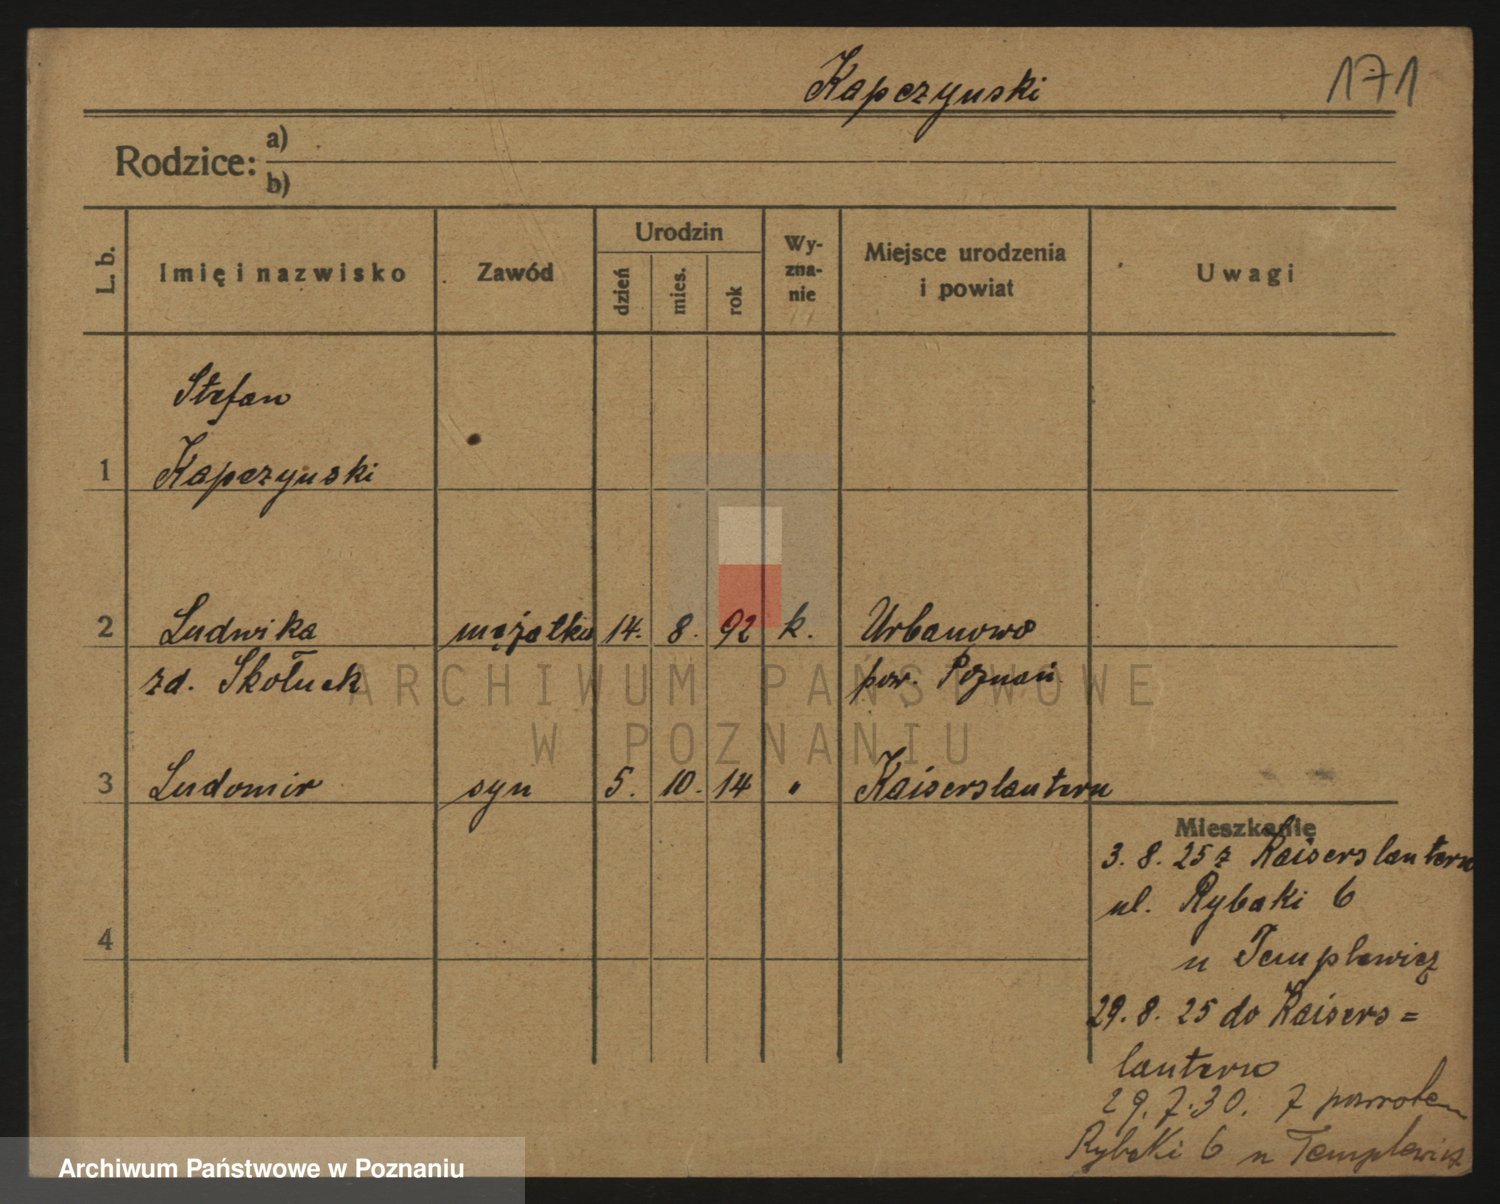 Kapczynski
171
Rodzice: a)
b)
L. b.
Imię i nazwisko
Zawód
Urodzin
dzień
mies.
rok
Wy-
zna-
nie
Miejsce urodzenia
i powiat
Uwagi
Stefan
1 Kapczynski
2 Ludwika mężatka 14. 8. 92 k. Urbanowo
zd. Skołuck pow. Poznań
3 Ludomir syn 5. 10. 14 " Kaiserslautern
Mieszkanie
3. 8. 25 z Kaiserslautern
ul. Rybaki 6
u Templewicz
4
29. 8. 25 do Kaisers=
lautern
29. 7. 30. z powrotem
Rybaki 6 u Templewicz
ARCHIWUM PAŃSTWOWE
W POZNANIU
Archiwum Państwowe w Poznaniu